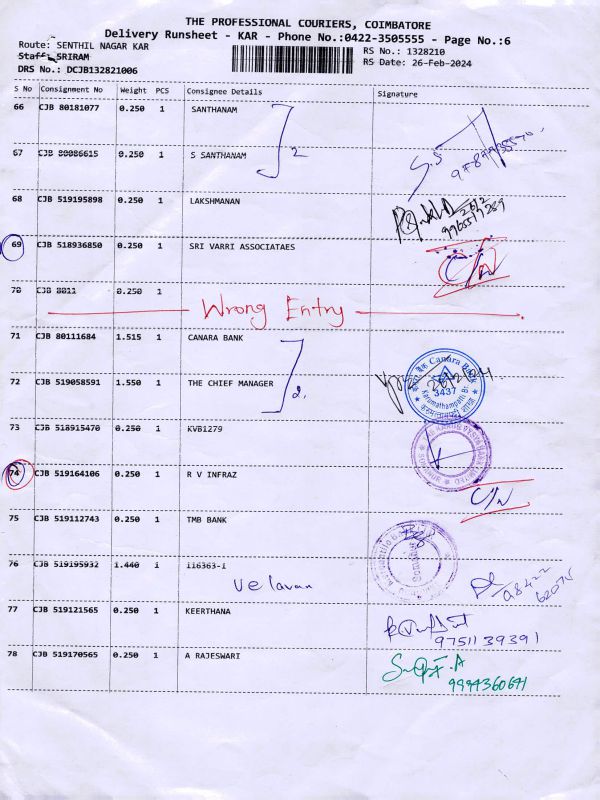 THE PROFESSIONAL COURIERS, COIMBATORE
Delivery Runsheet - KAR - Phone No.:0422-3505555 - Page No.:6
Route: SENTHIL NAGAR KAR
RS No.: 1328210
Staff: SRIRAM
RS Date: 26-Feb-2024
DRS No.: DCJB132821006
S No Consignment No Weight PCS Consignee Details Signature
66 CJB 80181077 0.250 1 SANTHANAM
67 CJB 80086615 0.250 1 S SANTHANAM 2
68 CJB 519195898 0.250 1 LAKSHMANAN 26/2
69 CJB 518936850 0.250 1 SRI VARRI ASSOCIATAES C/N
70 CJB 8811 0.250 1
Wrong Entry
71 CJB 80111684 1.515 1 CANARA BANK
72 CJB 519058591 1.550 1 THE CHIEF MANAGER 2. Canara Bank 3437
73 CJB 518915470 0.250 1 KVB1279
74 CJB 519164106 0.250 1 R V INFRAZ C/N
75 CJB 519112743 0.250 1 TMB BANK
76 CJB 519195932 1.440 1 116363-1
Velavan
77 CJB 519121565 0.250 1 KEERTHANA
9751139391
78 CJB 519170565 0.250 1 A RAJESWARI
9994360671